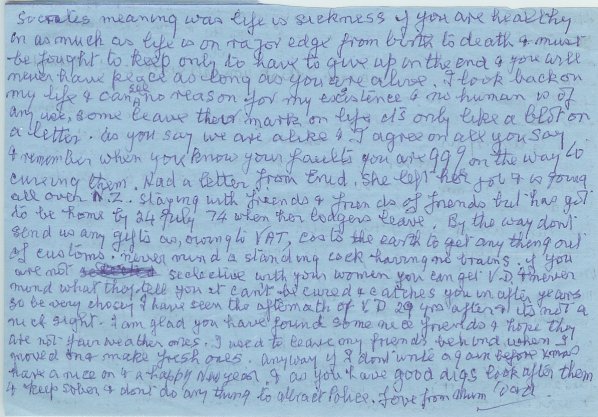 Socrates meaning was life is sickness if you are healthy
in as much as life is on razor edge from birth to death & must
be fought to keep only to have to give up in the end & you will
never have peace as long as you are alive. I look back on
my life & can see no reason for my existence & no human is of
any use, some leave their mark on life it's only like a blot on
a letter. As you say we are alike & I agree on all you say
& remember when you know your faults you are 999 on the way to
cureing them. Had a letter from Enid. She left her job & is going
all over N.Z. staying with friends & friends of friends but has got
to be home by 24 July 74 when her lodgers leave. By the way dont
send us any gifts as, owing to VAT, costs the earth to get any thing out
of customs. never mind a standing cock having no brains. if you
are not selective with your women you can get V.D. & never
mind what they tell you it can't be cured & catches you in after years
so be very choosy I have seen the aftemath of V D 29 yrs after & its not a
nice sight. I am glad you have found some nice friends & hope they
are not fair weather ones. I used to leave my friends behind when I
moved on & make fresh ones. anyway if I dont write again before Xmas
have a nice one & a happy New year, & as you have good digs look after them
& keep sober & dont do any thing to attract Police. Love from Mum & Dad